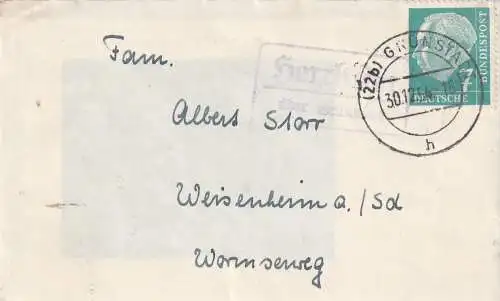 Fam.
Albert Storr
Weisenheim a./Sd
Wormserweg
(22b) GRÜNSTA
30.12.
h
7
DEUTSCHE
BUNDESPOST